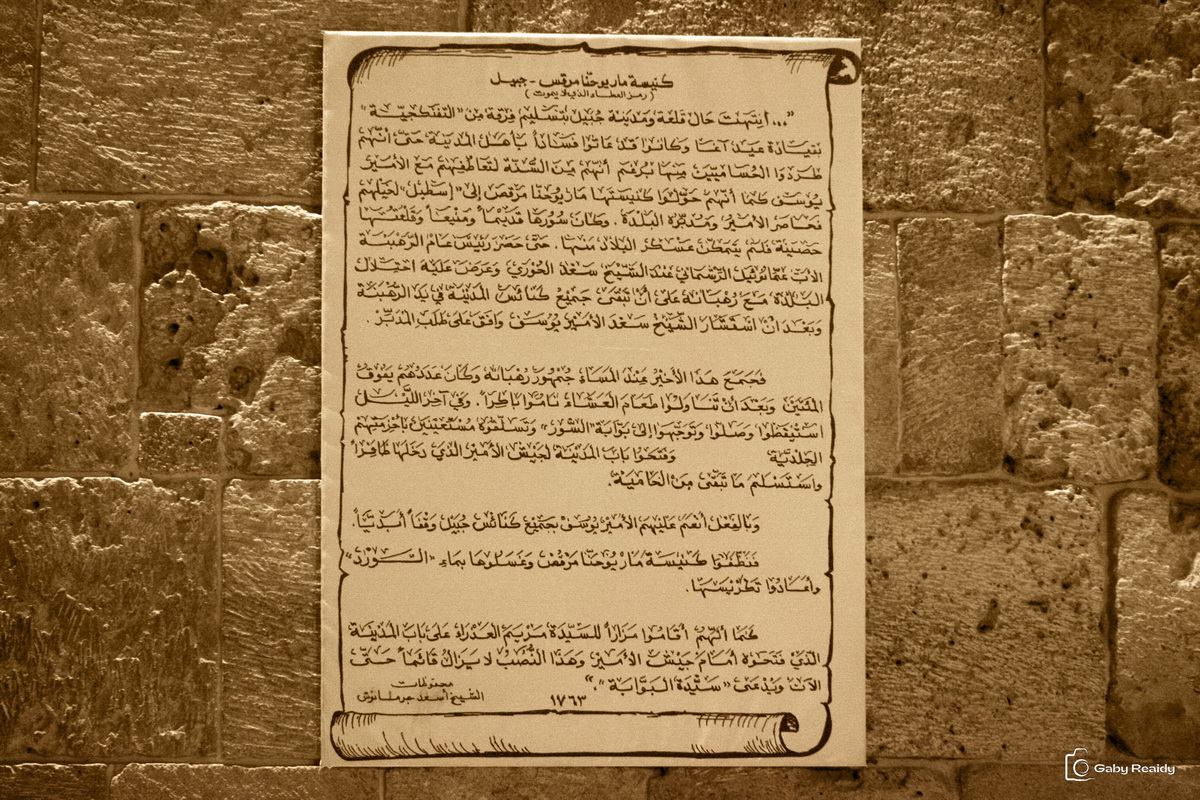 كنيسة مار يوحنا مرقس - جبيل
( رمز العطاء الذي لا يموت )
"... أنتهت حال قلعة ومدينة جبيل بتسليم فرقة من "التفنكجيّة"
بقيادة عيد آغا وكانوا قد عاثوا فساداً بأهل المدينة حتى أنهم
طردوا الحساميين منها برغم أنهم من السنّة لتعاطفهم مع الأمير
يوسف كما أنهم حوّلوا كنيستها مار يوحنا مرقص إلى "إسطبل" لخيلهم
فحاصر الأمير ومدبّره البلدة. وكان سورها قديماً ومنيعاً وقلعتها
حصينة فلم يتمكن عسكر البلاد منها. حتى حضر رئيس عام الرهبنة
الأب عمانوئيل الرشماني عند الشيخ سعد الخوري وعرض عليه احتلال
البلدة مع رهبانه على أن تبقى جميع كنائس المدينة في يد الرهبنة
وبعد أن استشار الشيخ سعد الأمير يوسف وافق على طلب المدبّر.
فجمع هذا الأخير عند المساء جمهور رهبانه وكان عددهم يفوق
المئتين وبعد أن تناولوا طعام العشاء ناموا باكراً. وفي آخر الليل
استيقظوا وصلوا وتوجهوا إلى بوابة "السور" وتسلقوه مستعينين بأحزمتهم
الجلدية وفتحوا باب المدينة لجيش الأمير الذي دخلها ظافراً
واستسلم ما تبقى من الحامية.
وبالفعل أنعم عليهم الأمير يوسف بجميع كنائس جبيل وقفاً أبديّاً.
فنظفوا كنيسة مار يوحنا مرقص وغسلوها بماء "الورد"
وأعادوا تكريسها.
كما أنهم أقاموا مزاراً للسيّدة مريم العذراء على باب المدينة
الذي فتحوه أمام جيش الأمير وهذا النُصُب لا يزال قائماً حتى
الآن ويدعى "سيّدة البوابة".."
محفوظات
الشيخ أسعد جرمانوش
١٧٦٣
Gaby Reaidy